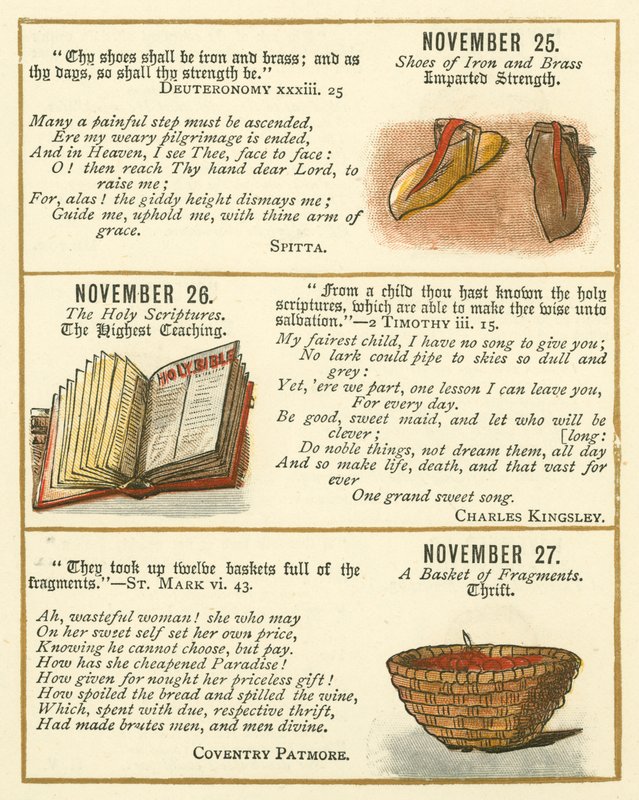 NOVEMBER 25.
Shoes of Iron and Brass
Imparted Strength.
“Thy shoes shall be iron and brass; and as
thy days, so shall thy strength be.”
DEUTERONOMY xxxiii. 25
Many a painful step must be ascended,
Ere my weary pilgrimage is ended,
And in Heaven, I see Thee, face to face:
O! then reach Thy hand dear Lord, to
raise me;
For, alas! the giddy height dismays me;
Guide me, uphold me, with thine arm of
grace.
SPITTA.
NOVEMBER 26.
The Holy Scriptures.
The Highest Teaching.
HOLY BIBLE
“From a child thou hast known the holy
scriptures, which are able to make thee wise unto
salvation.”—2 TIMOTHY iii. 15.
My fairest child, I have no song to give you;
No lark could pipe to skies so dull and
grey:
Yet, 'ere we part, one lesson I can leave you,
For every day.
Be good, sweet maid, and let who will be
clever; [long:
Do noble things, not dream them, all day
And so make life, death, and that vast for
ever
One grand sweet song.
CHARLES KINGSLEY.
NOVEMBER 27.
A Basket of Fragments.
Thrift.
“They took up twelve baskets full of the
fragments.”—ST. MARK vi. 43.
Ah, wasteful woman! she who may
On her sweet self set her own price,
Knowing he cannot choose, but pay.
How has she cheapened Paradise!
How given for nought her priceless gift!
How spoiled the bread and spilled the wine,
Which, spent with due, respective thrift,
Had made brutes men, and men divine.
COVENTRY PATMORE.